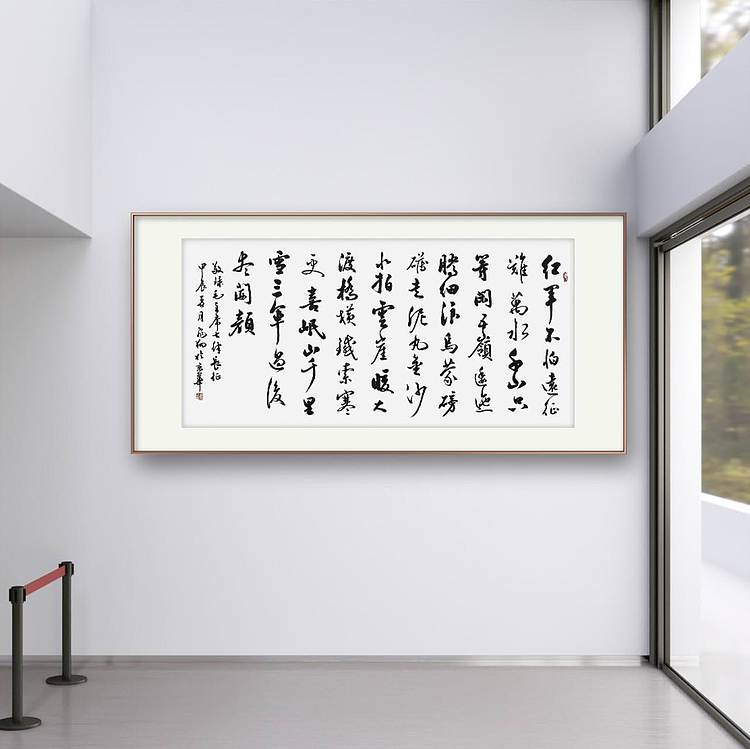 紅軍不怕遠征
難萬水千山只
等閑五嶺逶迤
騰细浪烏蒙磅
礴走泥丸金沙
水拍雲崖暖大
渡橋横鐵索寒
更喜岷山千里
雪三軍過後
盡開顔
敬録毛主席七律長征
甲辰月於京華